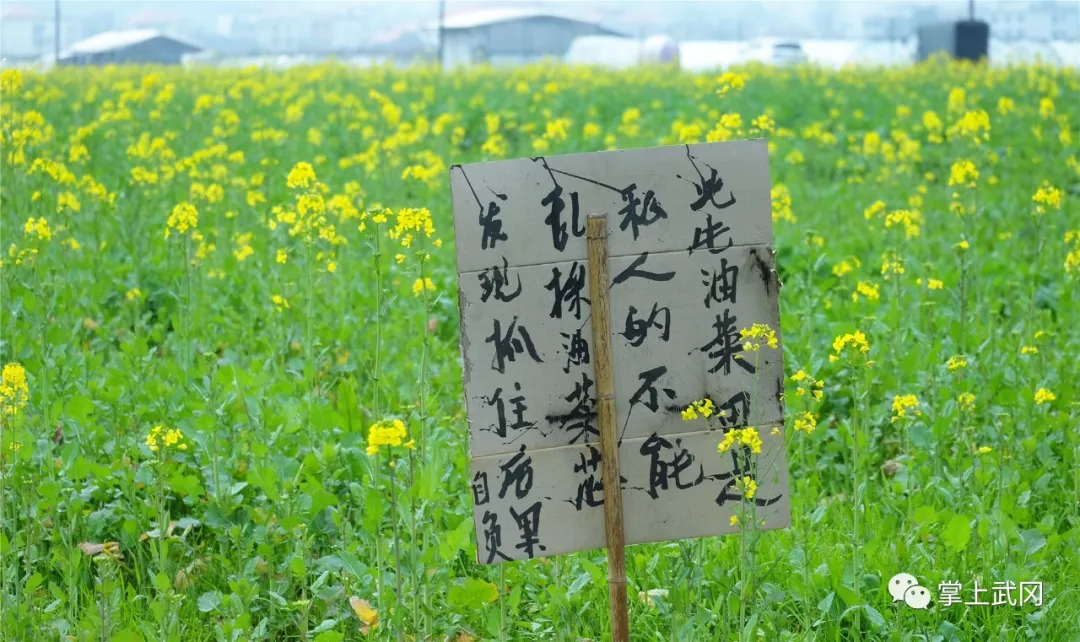 此油菜田是
私人的不能
乱採油菜芯
发现抓住后果
自负
掌上武网